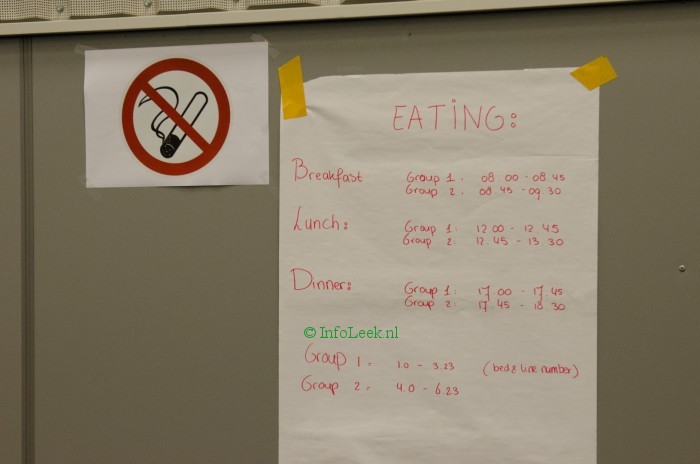 EATING:
Breakfast Group 1: 08.00 - 08.45
Group 2: 08.45 - 09.30
Lunch: Group 1: 12.00 - 12.45
Group 2: 12.45 - 13.30
Dinner: Group 1: 17.00 - 17.45
Group 2: 17.45 - 18.30
© InfoLeek.nl
Group 1 = 1.0 - 3.23 (bed & line number)
Group 2 = 4.0 - 6.23